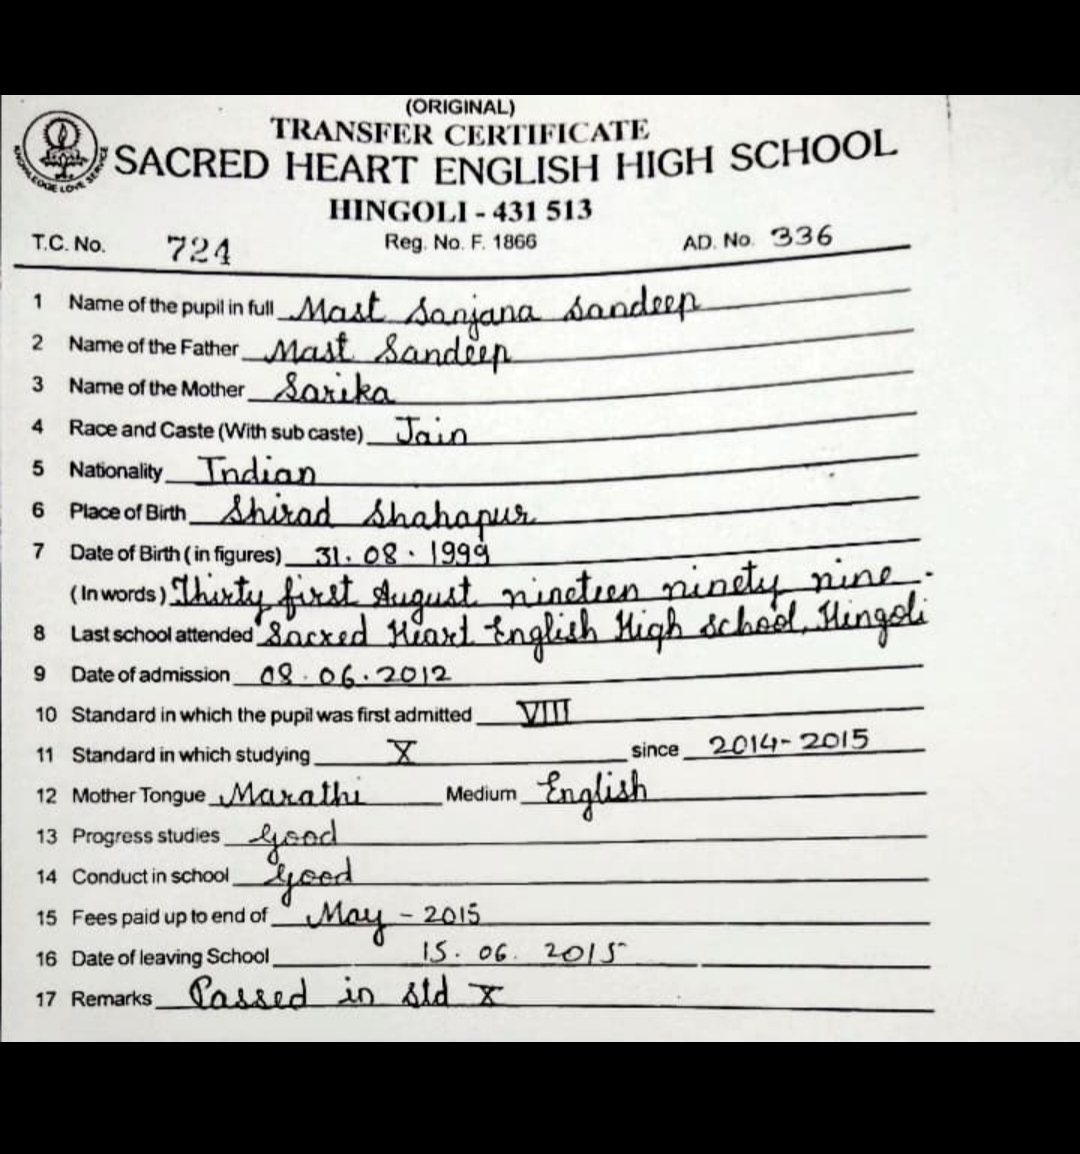 (ORIGINAL)
TRANSFER CERTIFICATE
SACRED HEART ENGLISH HIGH SCHOOL
KNOWLEDGE LOVE SERVICE
HINGOLI - 431 513
T.C. No. 724 Reg. No. F. 1866 AD. No. 336
1 Name of the pupil in full Mast Sanjana Sandeep
2 Name of the Father Mast Sandeep
3 Name of the Mother Sarika
4 Race and Caste (With sub caste) Jain
5 Nationality Indian
6 Place of Birth Shirad Shahapur
7 Date of Birth ( in figures) 31.08.1999
( In words ) Thirty first August nineteen ninety nine.
8 Last school attended Sacred Heart English High School, Hingoli
9 Date of admission 08.06.2012
10 Standard in which the pupil was first admitted VIII
11 Standard in which studying X since 2014-2015
12 Mother Tongue Marathi Medium English
13 Progress studies Good
14 Conduct in school Good
15 Fees paid up to end of May - 2015
16 Date of leaving School 15.06.2015
17 Remarks Passed in Std X